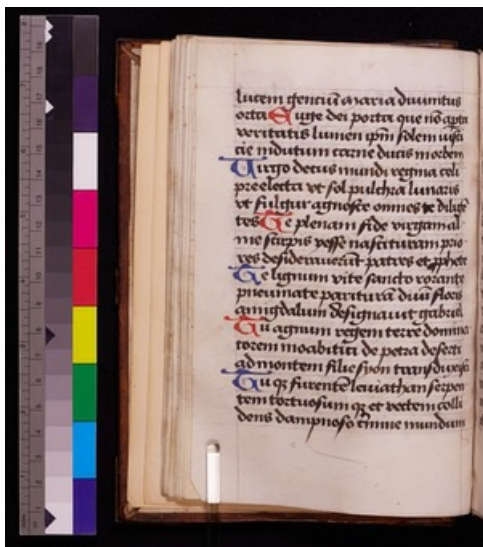 lucem gentiu maria divinitus
orta Euge dei porta que no aperta
veritatis lumen ipm solem iusti
cie indutum carne ducis in orbem
Virgo decus mundi regina celi
preelecta ut sol pulchra lunaris
ut fulgur agnosce omnes te dilige
tes Te plenam fide virgam al
me stirpis yesse nascituram prio
res desideraverat patres et pphete
Te lignum vite sancto rorante
pneumate parituram divi floris
amigdalum designavit gabriel
Tu agnum regem terre domina
torem moabitici de petra deserti
ad montem filie syon transduxisti
Tu q furente leviathan serpen
tem tortuosum q et vectem colli
dens dampnoso crimine mundum